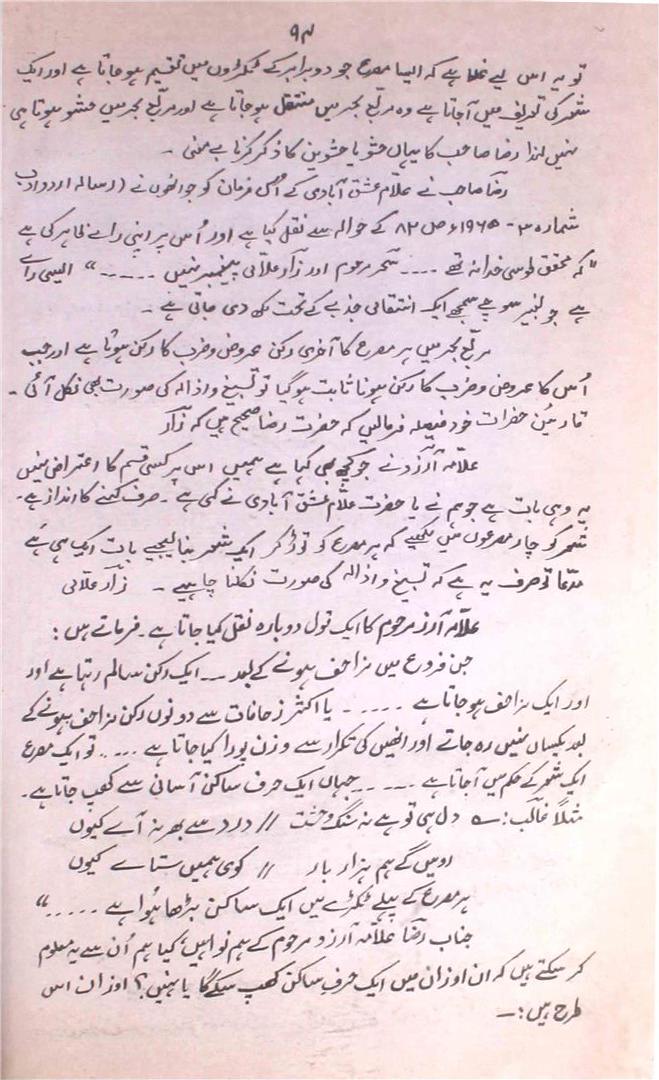 ۹۴
تو یہ اس لیے غلط ہے کہ ایسا مصرع جو دو برابر کے ٹکڑوں میں تقسیم ہو جاتا ہے اور ایک
شعر کی تعریف میں آ جاتا ہے وہ مربّع بحر میں منتقل ہو جاتا ہے اور مربّع بحر میں حشو ہوتا ہی
نہیں لہٰذا رضا صاحب کا یہاں حشو یا حشوین کا ذکر کرنا بے معنی ۔
رضا صاحب نے علام عشق آبادی کے اُس فرمان کو جو انھوں نے (رسالہ اردو ادب
شمارہ ۳ - ۱۹۶۵ء ص ۸۲ کے حوالہ سے نقل کیا ہے اور اُس پر اپنی رائے ظاہر کی ہے
"کہ محقق طوسی خدا نہ تھے .... سحر مرحوم اور زآر علاّمی پیغمبر نہیں ......" ایسی رائے
ہے جو بغیر سوچے سمجھے ایک انتقامی جذبے کے تحت لکھ دی جاتی ہے ۔
مربّع بحر میں ہر مصرع کا آخری رکن عروض و ضرب کا رکن ہوتا ہے اور جب
اُس کا عروض و ضرب کا رکن ہونا ثابت ہو گیا تو تسبیغ و اذالہ کی صورت بھی نکل آئی ۔
قارئین حضرات خود فیصلہ فرمالیں کہ حضرت رضا صحیح ہیں کہ زآر
علاّمہ آرزو نے جو کچھ بھی کہا ہے ہمیں اس پر کسی قسم کا اعتراض نہیں
یہ وہی بات ہے جو ہم نے یا حضرت علاّم عشق آبادی نے کہی ہے ۔ صرف کہنے کا انداز ہے۔
شعر کو چار مصرعوں میں لکھیے کہ ہر مصرع کو توڑ کر ایک شعر بنا لیجیے بات ایک ہی ہے
مدّعا تو صرف یہ ہے کہ تسبیغ و اذالہ کی صورت نکلنا چاہیے ۔ زآر علاّمی
علاّمہ آرزو مرحوم کا ایک قول دوبارہ نقل کیا جاتا ہے ۔ فرماتے ہیں :
جن فروع میں مزاحف ہونے کے بعد ... ایک رکن سالم رہتا ہے اور
اور ایک مزاحف ہو جاتا ہے ..... یا اکثر زحافات سے دونوں رکن مزاحف ہونے کے
بعد یکساں نہیں رہ جاتے اور انھیں کی تکرار سے وزن پورا کیا جاتا ہے .... تو ایک مصرع
ایک شعر کے حکم میں آ جاتا ہے ..... جہاں ایک حرف ساکن آسانی سے کھپ جاتا ہے۔
مثلاً غالب : ؎ دل ہی تو ہے نہ سنگ و خشت // درد سے بھر نہ آے کیوں
روئیں گے ہم ہزار بار // کوئی ہمیں ستاے کیوں
ہر مصرع کے پہلے ٹکڑے میں ایک ساکن بڑھا ہُوا ہے ....."
جناب رضا علاّمہ آرزو مرحوم کے ہم نوا ہیں؛ کیا ہم اُن سے یہ معلوم
کر سکتے ہیں کہ ان اوزان میں ایک حرف ساکن کھپ سکے گا یا نہیں ؟ اوزان اس
طرح ہیں : ـــ